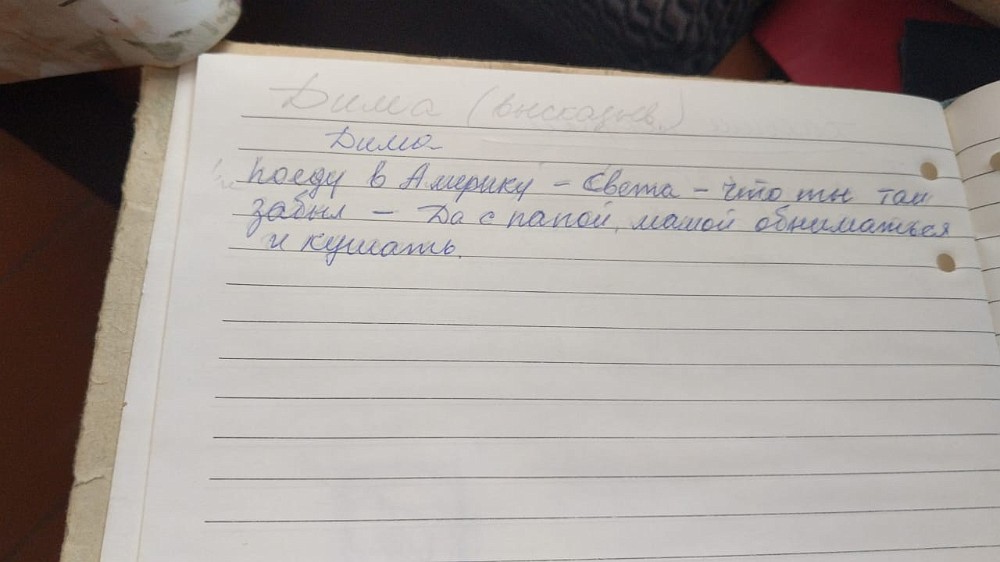 Дима (высказыв.)
Дима
поеду в Америку – Света – что ты там
забыл – Да с папой, мамой обниматься
и кушать.